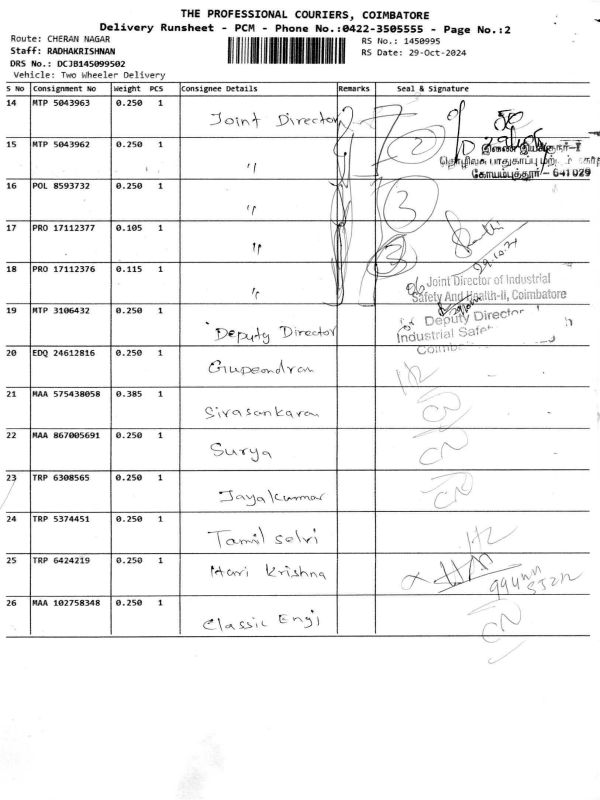 THE PROFESSIONAL COURIERS, COIMBATORE
Delivery Runsheet - PCM - Phone No.:0422-3505555 - Page No.:2
Route: CHERAN NAGAR
RS No.: 1450995
Staff: RADHAKRISHNAN
RS Date: 29-Oct-2024
DRS No.: DCJB145099502
Vehicle: Two Wheeler Delivery
S No Consignment No Weight PCS Consignee Details Remarks Seal & Signature
14 MTP 5043963 0.250 1 Joint Director
15 MTP 5043962 0.250 1 " 2
இணை இயக்குநர்-I
தொழிலக பாதுகாப்பு மற்றும்
கோயம்புத்தூர் - 641 029
16 POL 8593732 0.250 1 " 3
17 PRO 17112377 0.105 1 " 3
29.10.24
18 PRO 17112376 0.115 1 "
Joint Director of Industrial
Safety And Health-II, Coimbatore
19 MTP 3106432 0.250 1 Deputy Director
Deputy Director
Industrial Safet
Coimb
20 EDQ 24612816 0.250 1
21 MAA 575438058 0.385 1 Sivasankaran CN
22 MAA 867005691 0.250 1 Surya CN
23 TRP 6308565 0.250 1 Jayakumar CN
24 TRP 5374451 0.250 1 Tamil selvi
25 TRP 6424219 0.250 1 Hari Krishna
26 MAA 102758348 0.250 1 Classic Engi CN